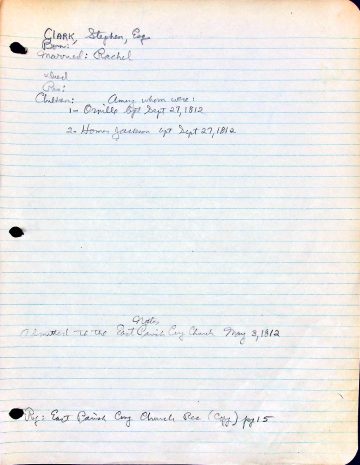 CLARK, Stephen, Esq
Born:
Married: Rachel
Died
Res:
Children: Among whom were:
1- Orville bpt Sept 27, 1812
2- Homer Jackson bpt Sept 27, 1812
Notes
Admitted to the East Parish Cong Church May 3, 1812
Ref: East Parish Cong Church Rec (Copy) pg 15